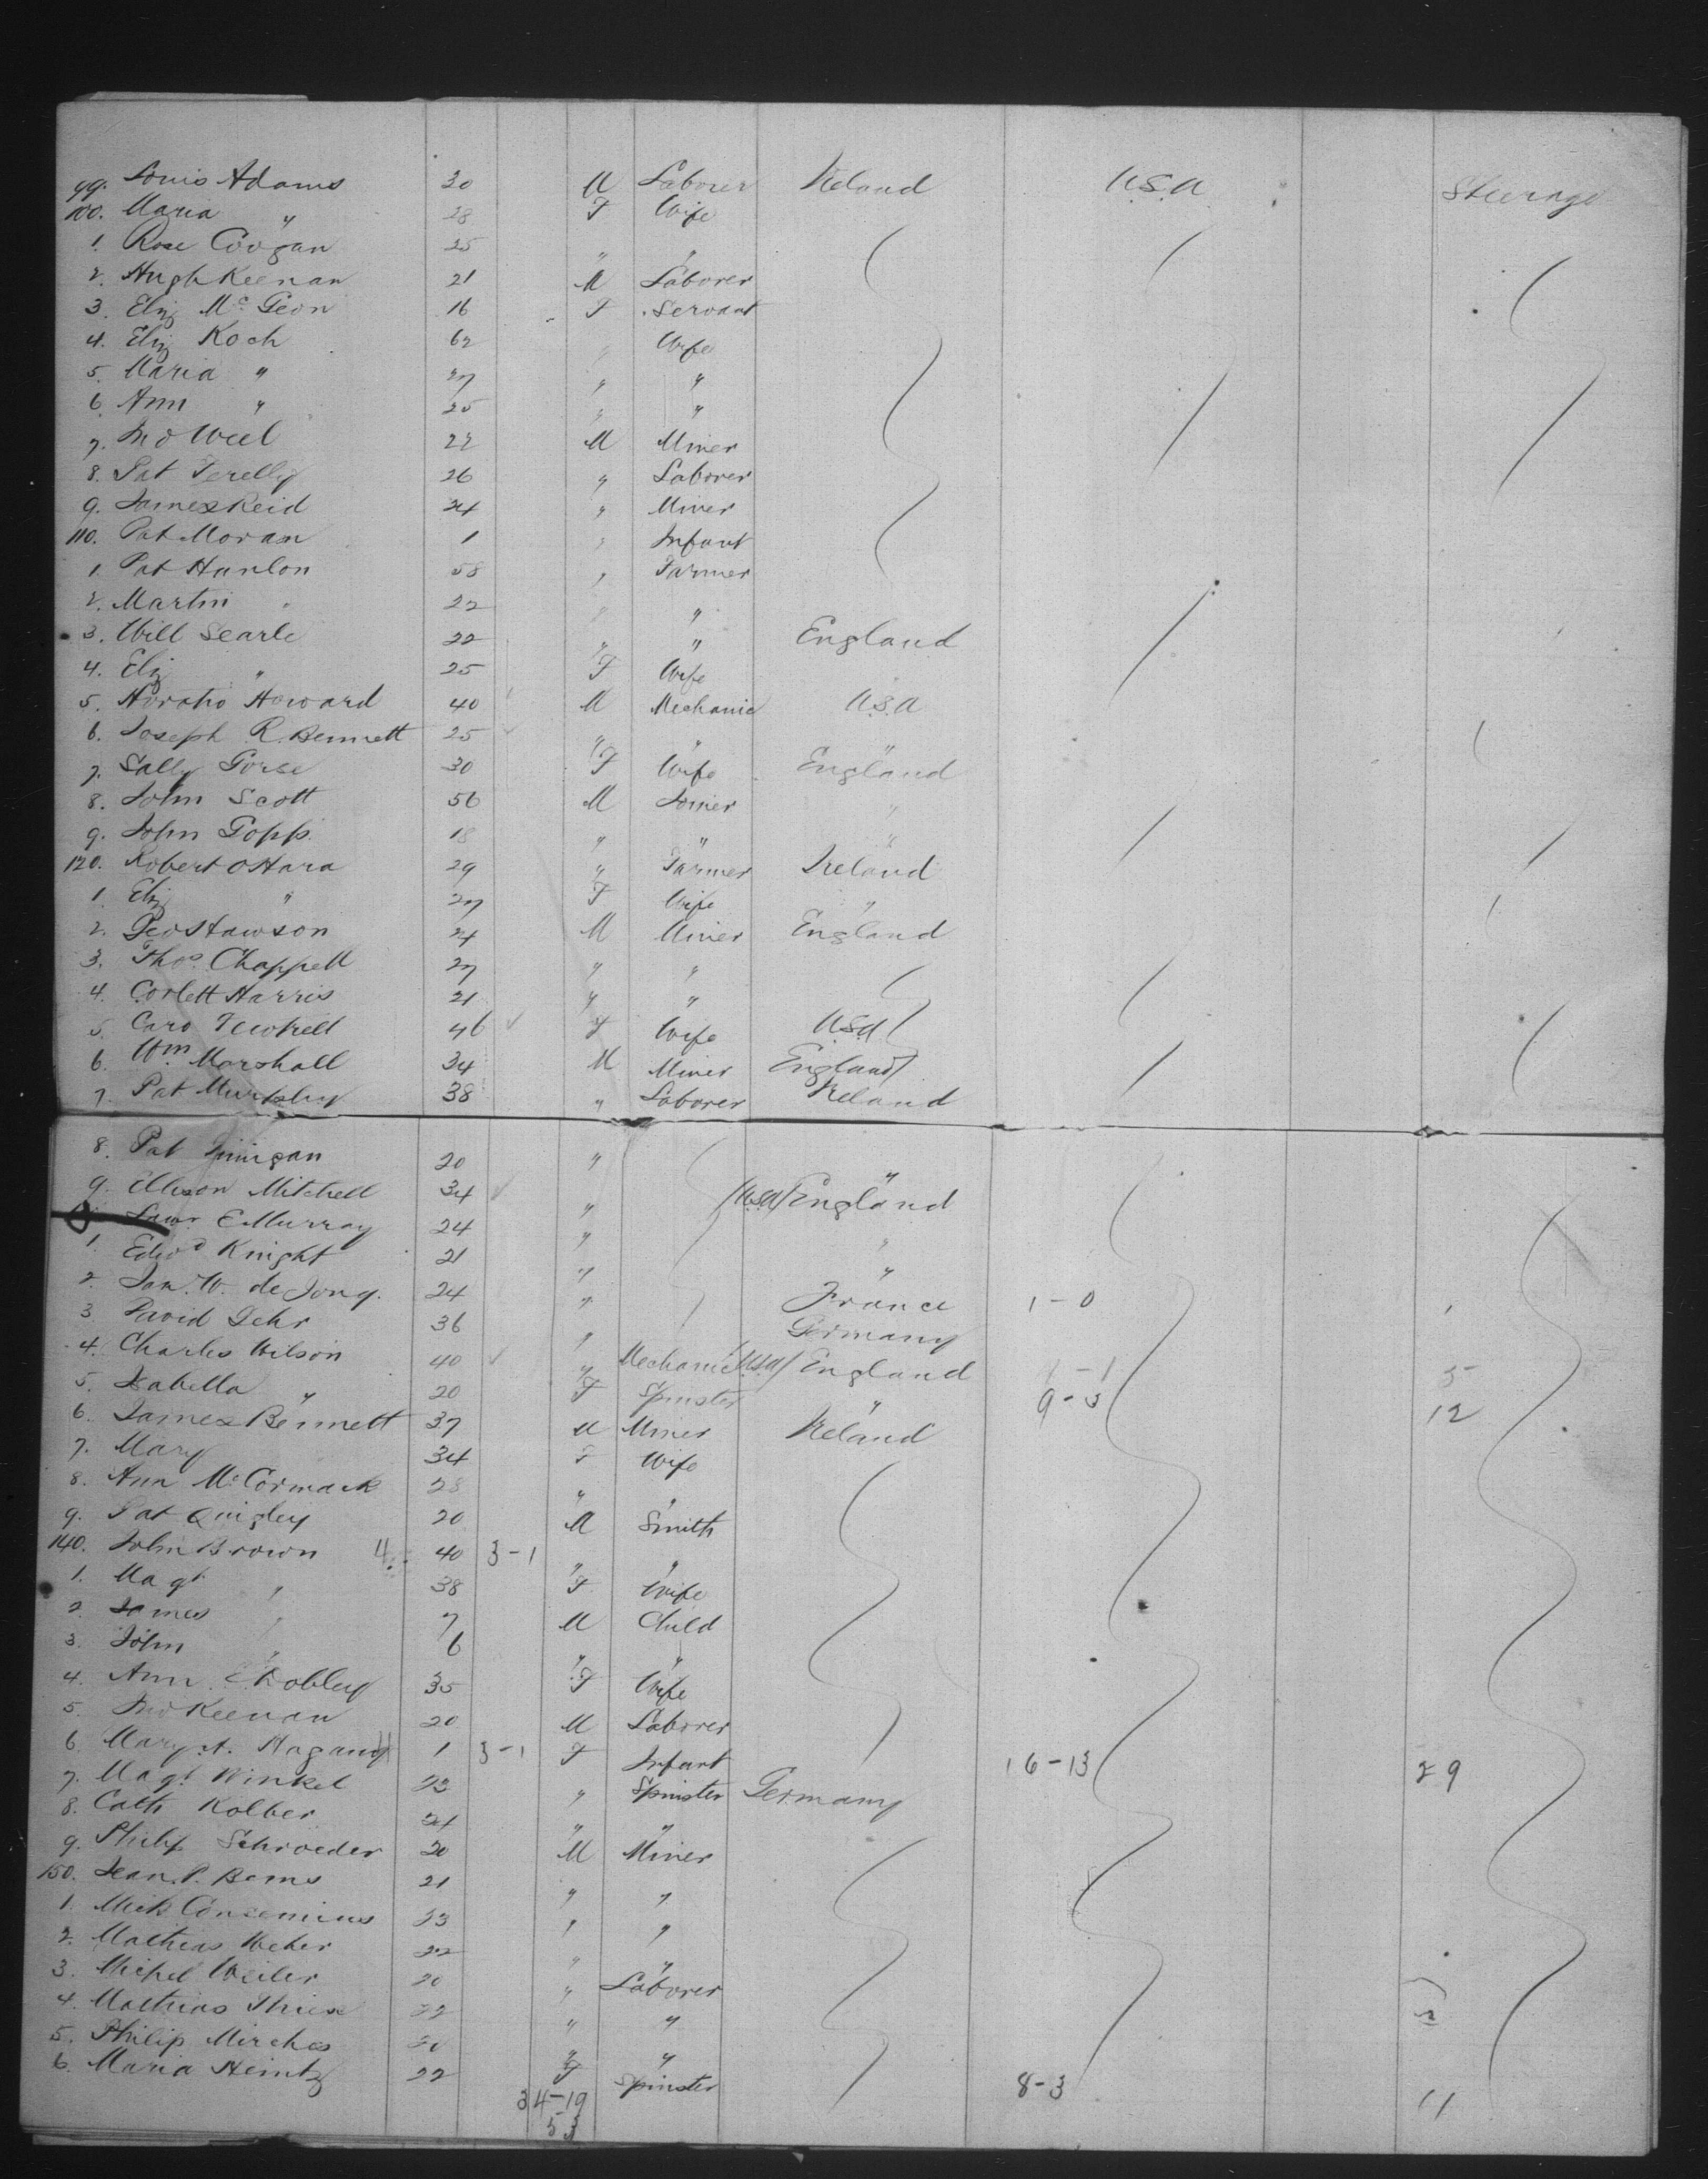 99. Louis Adams 30 M Laborer Ireland U.S.A Steerage
100. Maria " 28 F Wife
1. Rose Coogan 25 " "
2. Hugh Keenan 21 M Laborer
3. Eliz Mc Geon 16 F Servant
4. Eliz Koch 62 " Wife
5. Maria " 27 " "
6. Ann " 25 " "
7. Jno Weel 22 M Miner
8. Pat Terelly 26 " Laborer
9. James Reid 24 " Miner
110. Pat Moran 1 " Infant
1. Pat Hanlon 58 " Farmer
2. Martin " 22 " "
3. Will Searle 22 " " England
4. Eliz " 25 F Wife
5. Horatio Howard 40 M Mechanic U.S.A
6. Joseph R. Bennett 25 " " "
7. Sally Gorse 30 F Wife England
8. John Scott 56 M Joiner "
9. John Gopp 18 " " "
120. Robert O Hara 29 " Farmer Ireland
1. Eliz " 27 F Wife "
2. Geo Hawson 24 M Miner England
3. Thos. Chappell 27 " "
4. Corlett Harris 21 " "
5. Caro 46 F Wife U.S.A
6. Wm. Marshall 34 M Miner England
7. Pat Murphy 38 " Laborer Ireland
8. Pat 20 " "
9. Ellison Mitchell 34 " (U.S.A) England
E Murray 24 " "
1. Edwd Knight 21 " "
2. Jan. W. de Jong. 24 " France 1-0 1
3 David Gehr 36 " Germany
4. Charles Wilson 40 " Mechanic (U.S.A) England 5
5. Isabella " 20 F Spinster " 9-3 12
6. James Bennett 37 M Miner Ireland
7. Mary 34 F Wife
8. Ann McCormack 28 " "
9. Pat Quigley 20 M Smith
140. John Brown 4 40 3-1 " "
1. Magt " 38 F Wife
2. James " 7 M Child
3. John " 6 " "
4. Ann 35 F Wife
5. Jno Keenan 20 M Laborer
6. Mary A. 1 3-1 F Infant 16-13 29
7. Magt Winkel 23 " Spinster Germany
8. Cath Kolber 24 " "
9. Philip Schroeder 20 M Miner
150. Jean. P. Bems 21 " "
1. Mich 23 " "
2. Mathias Weber 22 " "
3. Michel Weiler 20 " Laborer
4. Mathias Thies 22 " "
5. Philip Mirches 20 " "
6. Maria Heintz 22 F Spinster 8-3 11
34-19
53